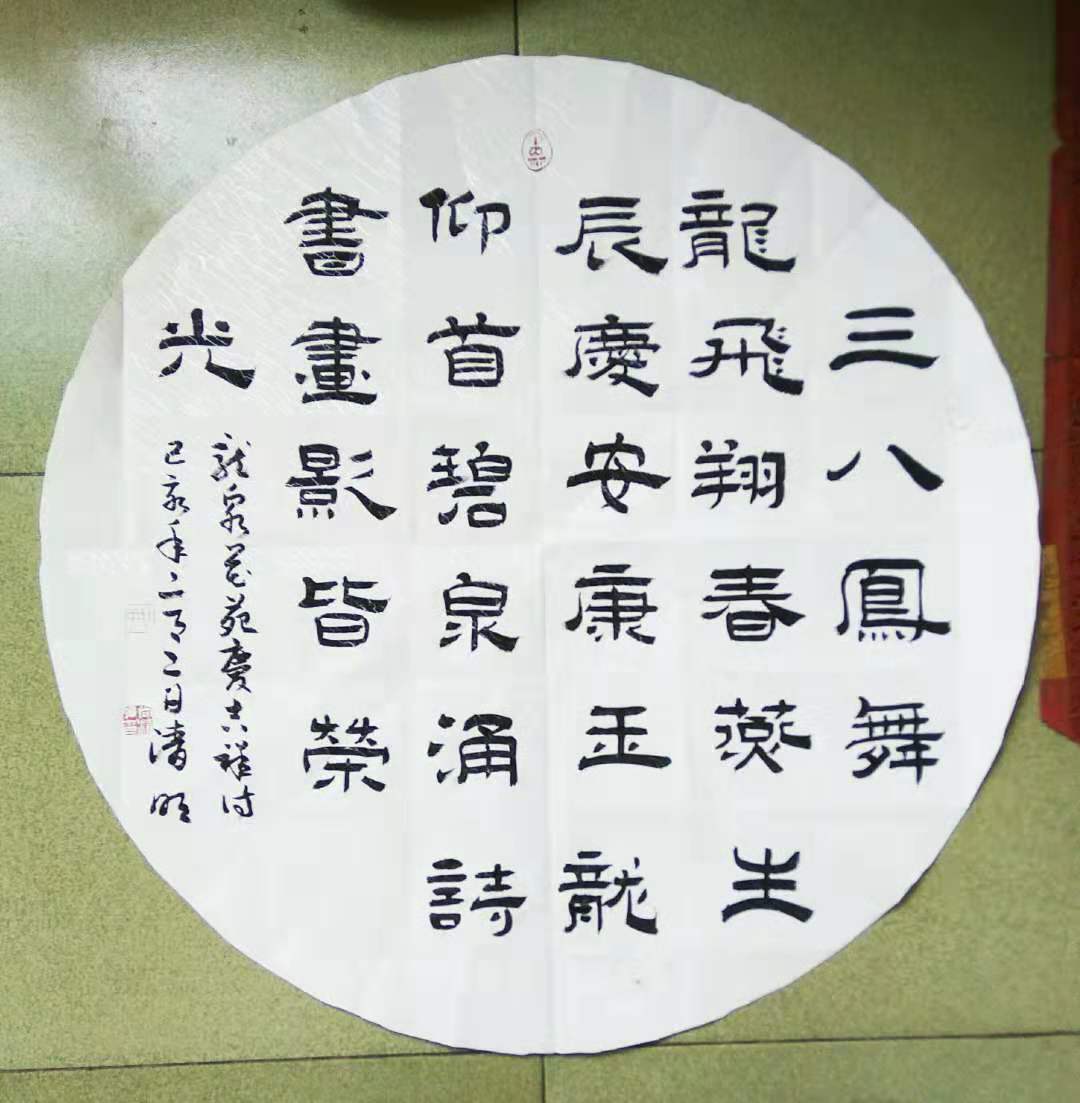 三八鳳舞
龍飛翔春燕生
辰慶安康玉龍
仰首碧泉涌詩
書畫影皆榮
光
龍泉花苑慶吉祥詩
己亥年二月二日清明